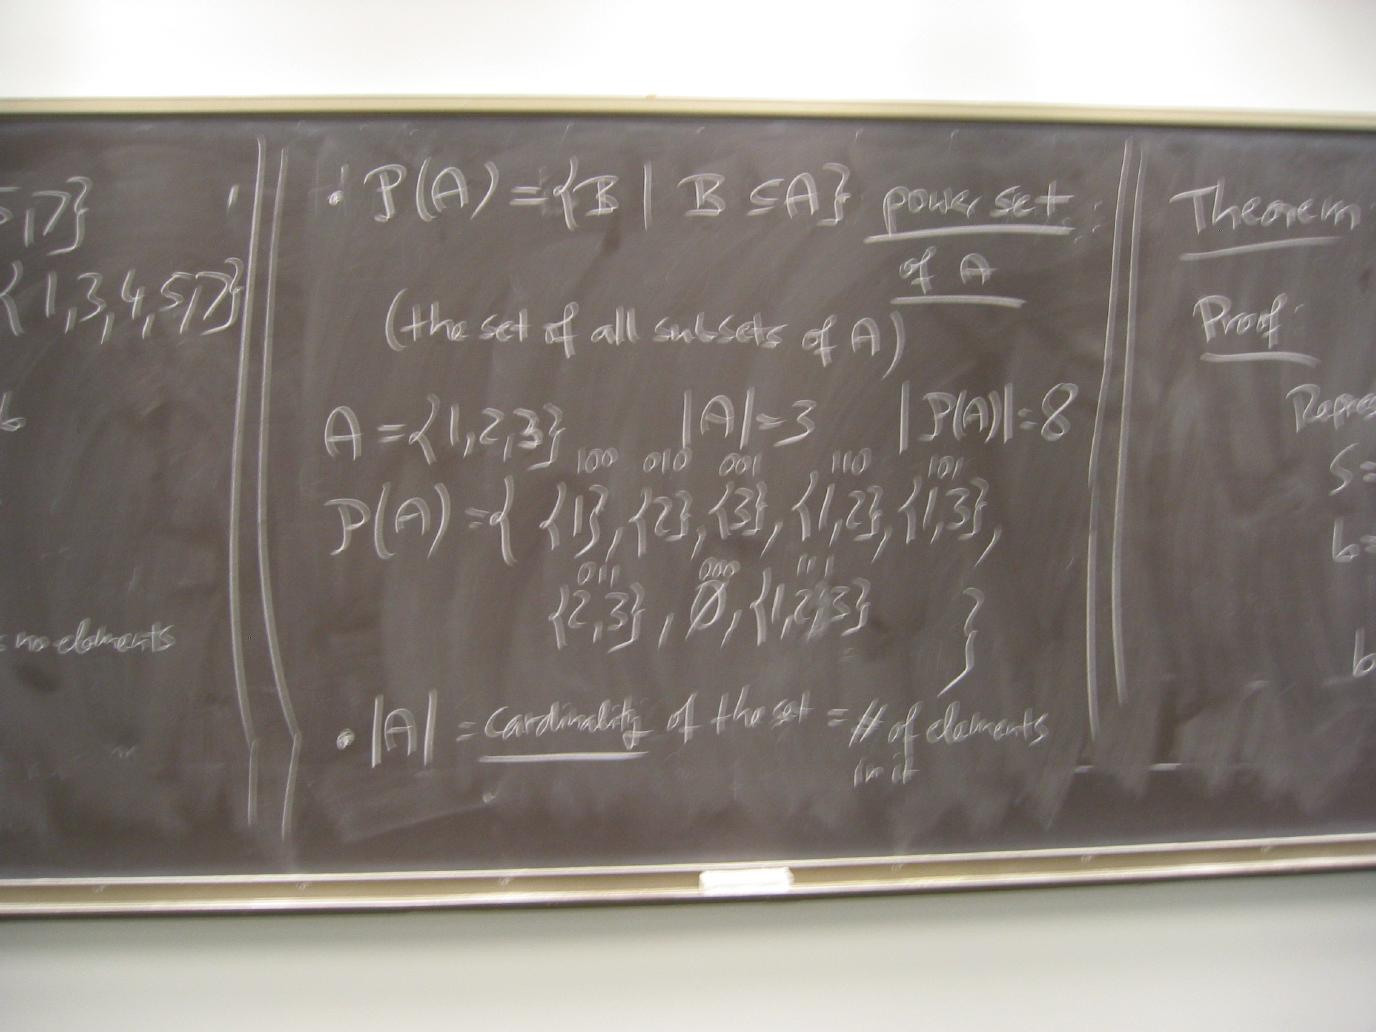 5,7}
{1,3,4,5,7}
b
no elements
• P(A) = {B | B ⊆ A} power set
of A
(the set of all subsets of A)
A = {1,2,3} |A| = 3 |P(A)| = 8
100 010 001 110 101
P(A) = { {1}, {2}, {3}, {1,2}, {1,3},
011 000 111
{2,3}, ∅, {1,2,3} }
• |A| = cardinality of the set = # of elements
in it
Theorem
Proof:
Repres
S=
b=
b